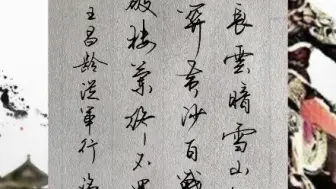 長雲暗雪山
關黃沙百戰
破樓蘭終不還
王昌齡從軍行